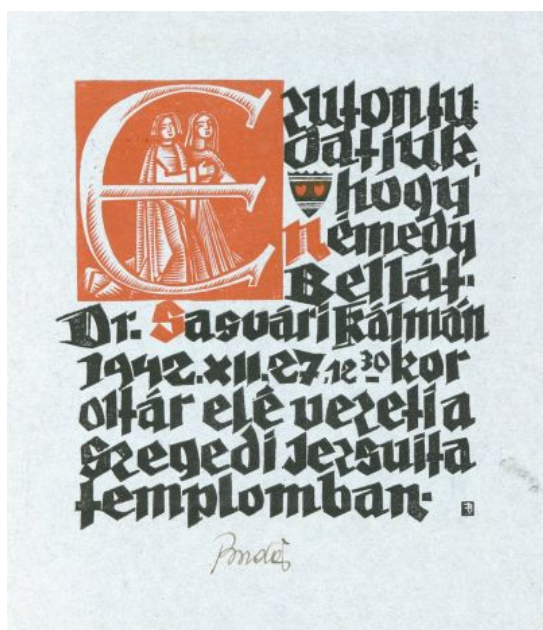 Ezuton tu:
datjuk
hogy
Némedy
Bellát.
Dr. Sasvári Kálmán
1942.XII.27, 12 30 kor
oltár elé vezeti a
szegedi Jezsuita
templomban.